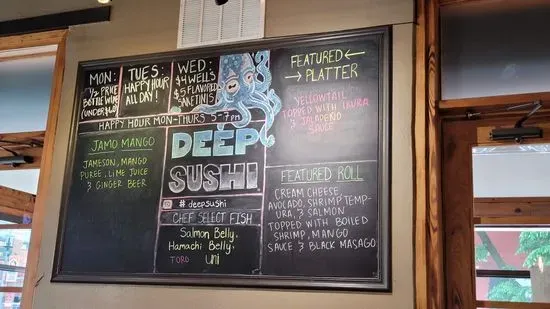 MON:
1/2 PRICE
BOTTLE WINE
TUES:
HAPPY HOUR
ALL DAY!
WED:
$4 WELLS
$5 FLAVORED
FEATURED
PLATTER
YELLOWTAIL
TOPPED WITH IKURA
& JALAPEÑO
SAUCE
HAPPY HOUR MON-THURS 5-7pm
JAMO MANGO
JAMESON, MANGO
PUREE, LIME JUICE
& GINGER BEER
DEEP
SUSHI
# deepsushi
CHEF SELECT FISH
Salmon Belly,
Hamachi Belly,
TORO
UNI
FEATURED ROLL
CREAM CHEESE,
AVOCADO, SHRIMP TEMP-
URA, & SALMON
TOPPED WITH BOILED
SHRIMP, MANGO
SAUCE & BLACK MASAGO